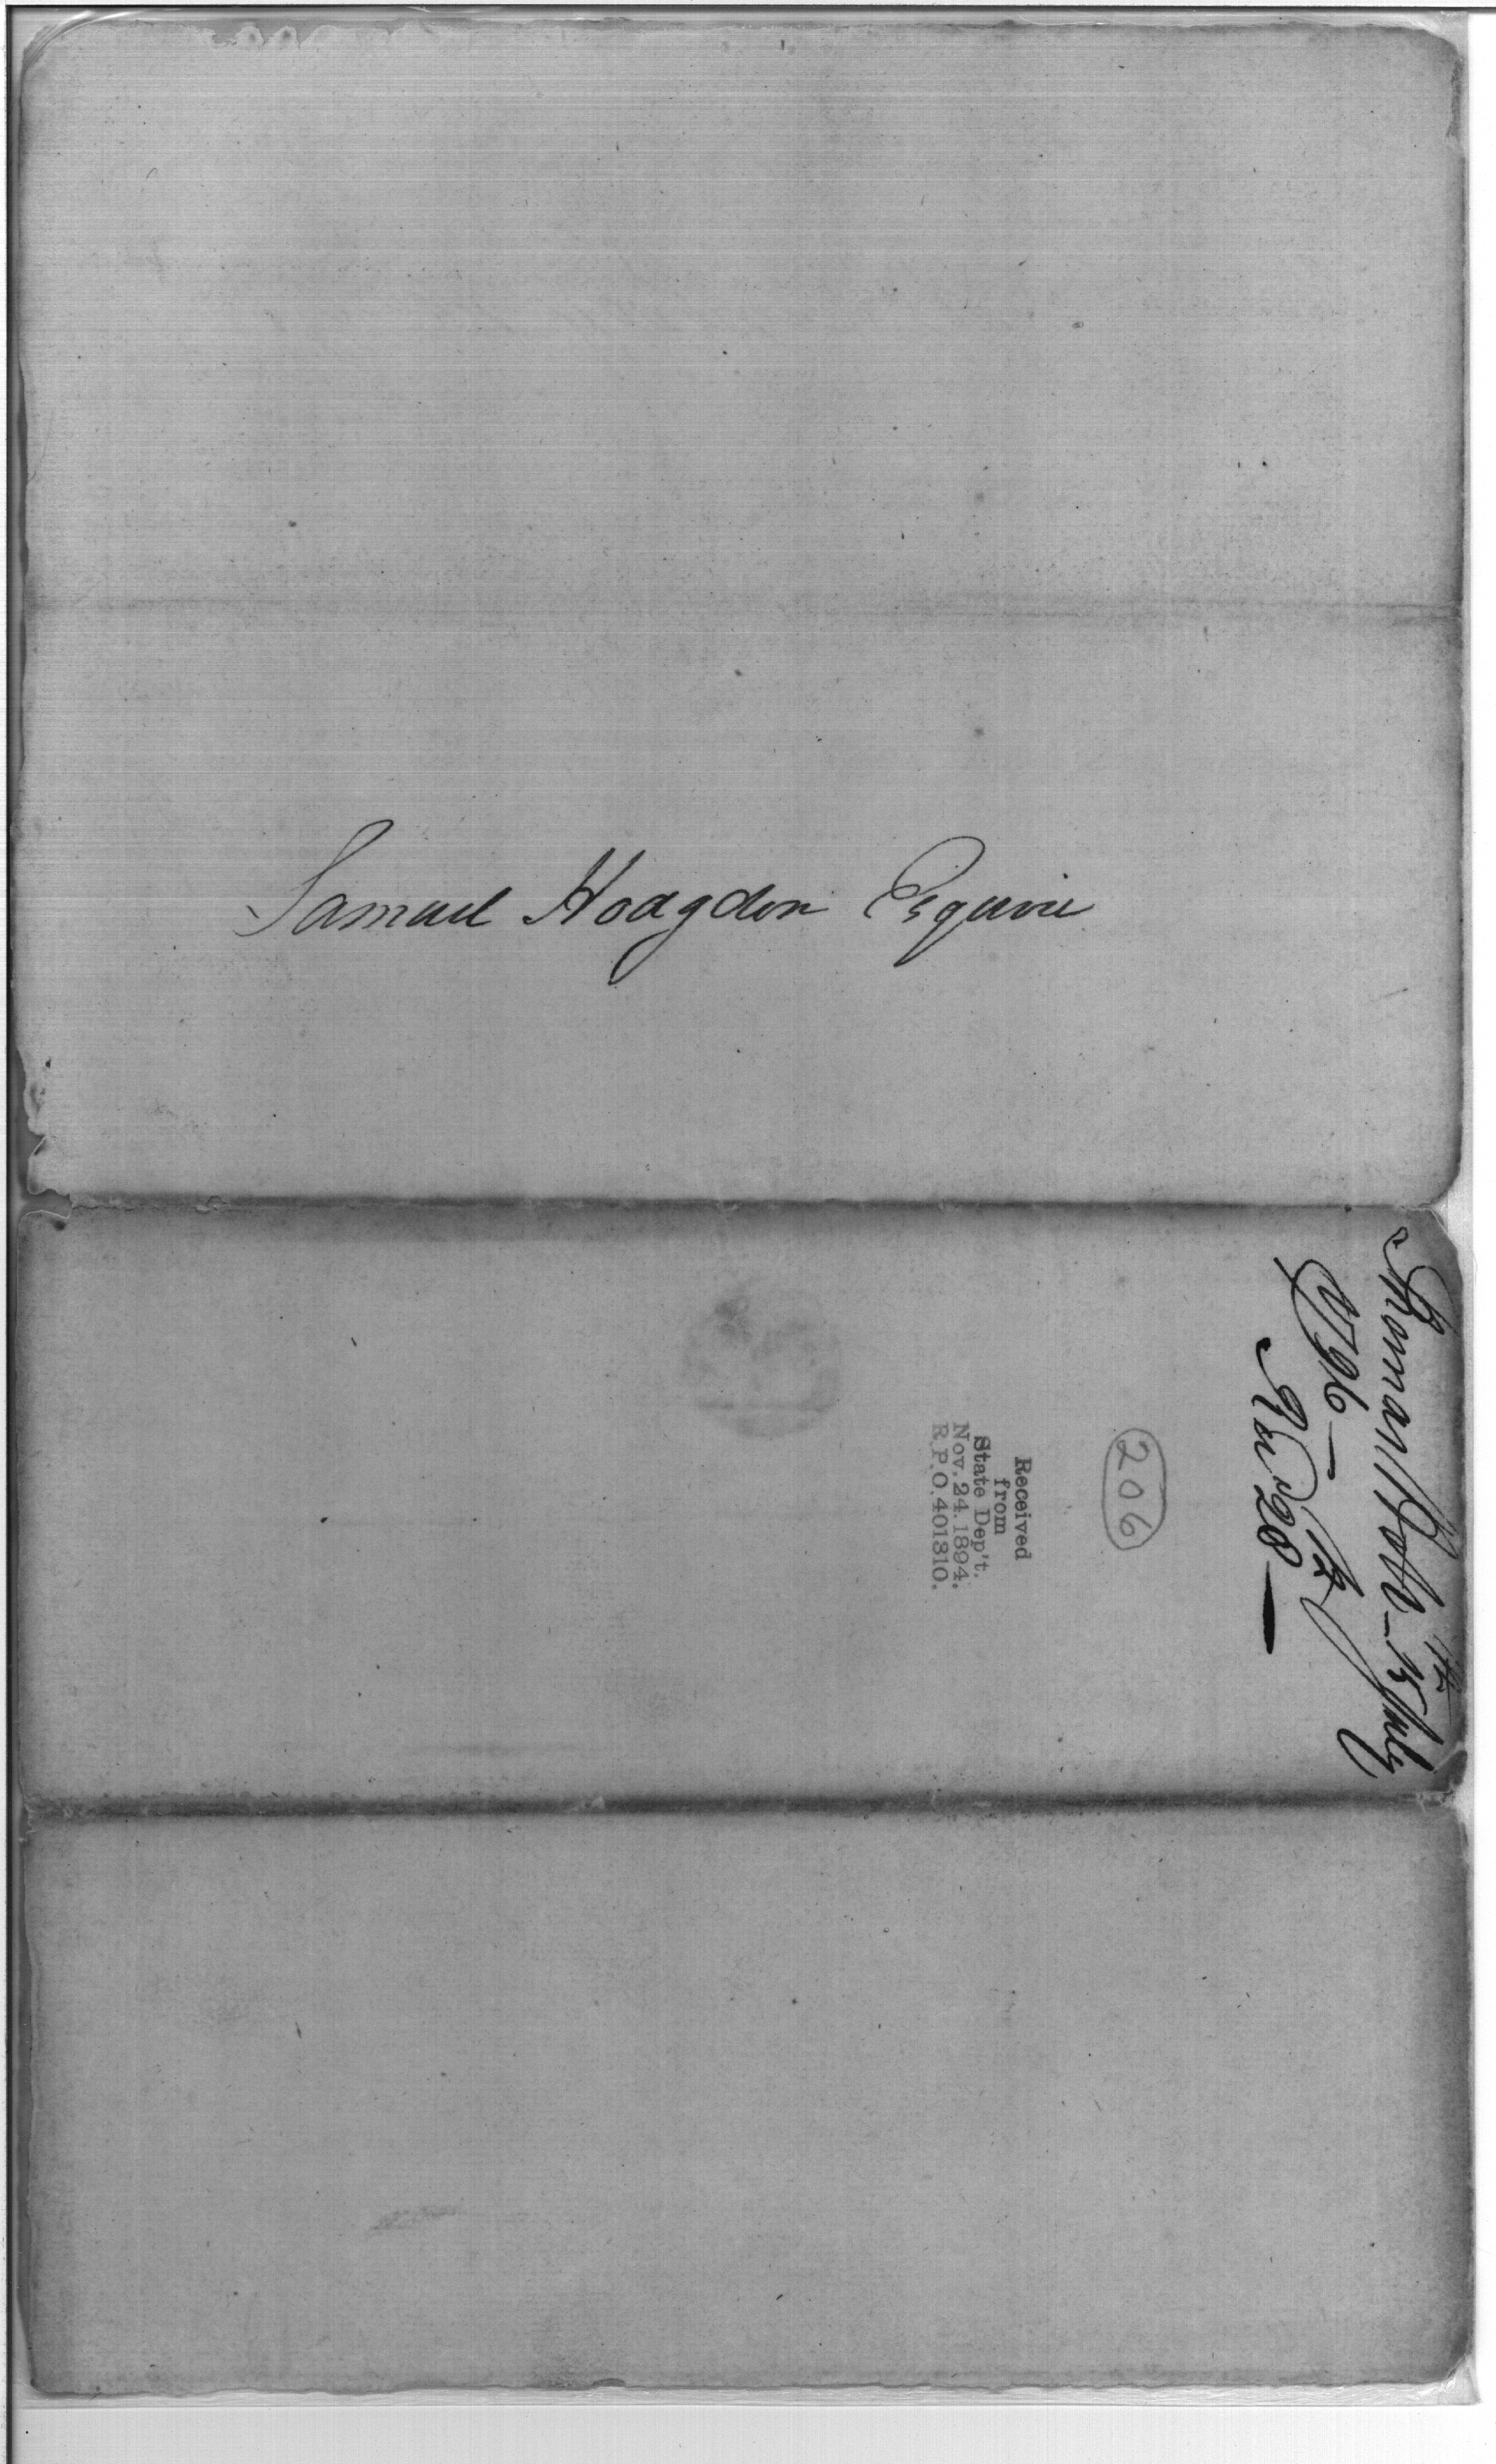 Samuel Hodgdon Esquire
Thomas Hobb - 15th July
1796 -
Rec'd 28th -
206
Received
from
State Dep't.
Nov. 24. 1894.
R.P.O. 401310.